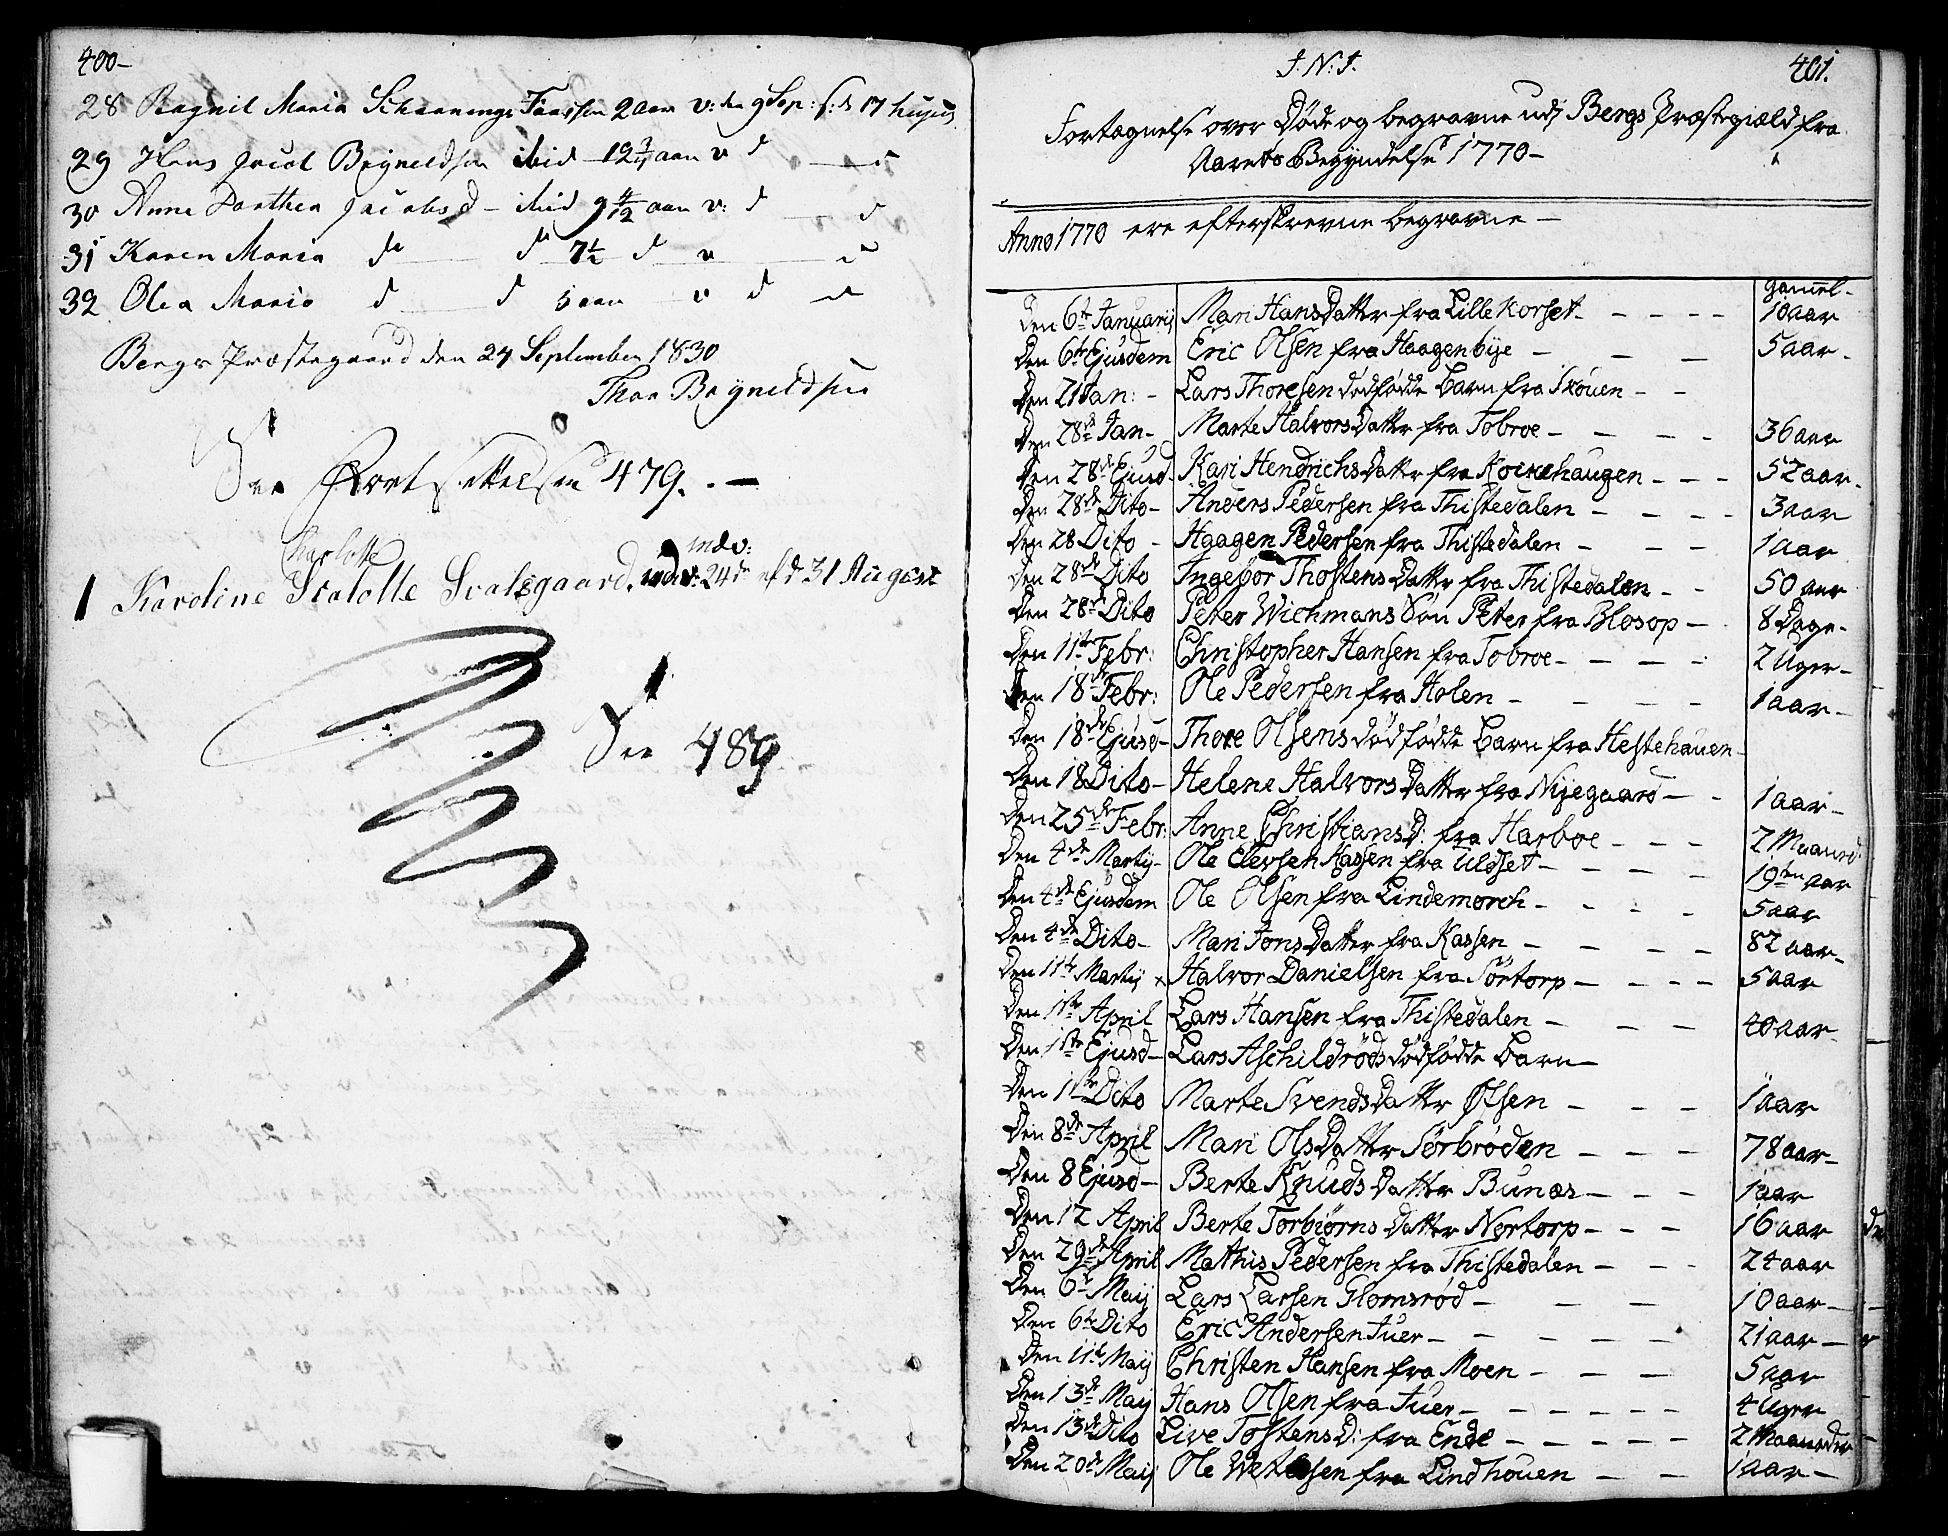 400-
28 Ragnil Maria Schaanings Fossen 2 aar v: den 9 Sep: f: d 17 hujus
29 Hans Jacob Bryneldsen ibid 12 3/4 aar v d d
30 Anne Dorthea Jacobsd - ibid 9 4/12 aar v: d d
31 Karen Maria do d 7½ d v d
32 Olea Maria d d 5 aar v d d
Bergs Præstegaard den 24 September 1830
Thor Bryneldsen
See Fortsettelsen 479. -
Charlotte indv:
1 Karoline Scalotte Svalsgaard. 24de ef d 31 August
See 489
J: N: J. 401.
Fortegnelse over Døde og begravne udj Bergs Præstegiæld fra
Aarets Begyndelse 1770-
Anno 1770 ere efterskrevne begravne -
gamel-
Den 6te Januarij Mari HansDatter fra Lille Korset - 10 aar
Den 6te Ejusdem Eric Olsen fra Haagenbye - 5 aar-
Den 21 Jan: - Lars Thoresen dødfødde Barn fra Skouen - -
Den 28de Jan- Marte HalvorsDatter fra Tobroe - 36 aar
Den 28de Ejusd- Kari HendrichsDatter fra Kockehaugen - 52 aar-
Den 28de Dito- Anders Pedersen fra Thistedalen - 3 aar
Den 28 Dito - Haagen Pedersen fra Thistedalen - 1 aar
Den 28de Dito Ingebor ThostensDatter fra Thistedalen - 50 aar
Den 28de Dito Peter Wichmans Søn Peter fra Blosop - 8 Dage-
Den 11te Febr: Christopher Hansen fra Tobroe - 2 Uger-
Den 18de Febr: Ole Pedersen fra Holen - 1 aar-
Den 18de Ejusd- Thore Olsens dødfødde Barn fra Hestehauen-
Den 18 Dito- Helene HalvorsDatter fra Nyegaard - 1 aar-
Den 25de Febr: Anne Christiansd: fra Harboe - 2 Maaned:
Den 4de Martij- Ole Elevsen Kassen fra Ulsset - 19ten aar
Den 4de Ejusdem Ole Olsen fra Lindemarch - 5 aar
Den 4de Dito- Mari JonsDatter fra Kassen - 82 aar-
Den 11te Martij x Halvor Danielsen fra Sørtorp - 5 aar
Den 1ste April Lars Hansen fra Thistedalen - 40 aar-
Den 1ste Ejusd- Lars Aschildrøds dødfødde Barn-
Den 1ste Dito Marte SvendsDatter Ølsen - 1 aar
Den 8de April Mari OlsDatter Sørbrøden - 78 aar-
Den 8 Ejusd- Berte KnudsDatter Bunæs - 1 aar
Den 12 April Berte TorbiørnsDatter Nortorp - 16 aar
Den 29de April Mathis Pedersen fra Thistedalen - 24 aar
Den 6te Maij Lars Larsen Glomsrød - 10 aar-
Den 6te Dito Eric Andersen Juer - 21 aar-
Den 11te Maij Christen Hansen fra Moen - 5 aar
Den 13de Maij Hans Olsen fra Juer - 4 Uger
Den 13de Dito Live Tostensd: fra Ende - 2 Maaneder
Den 20de Maij Ole fra Lindhouen - 1 aar-